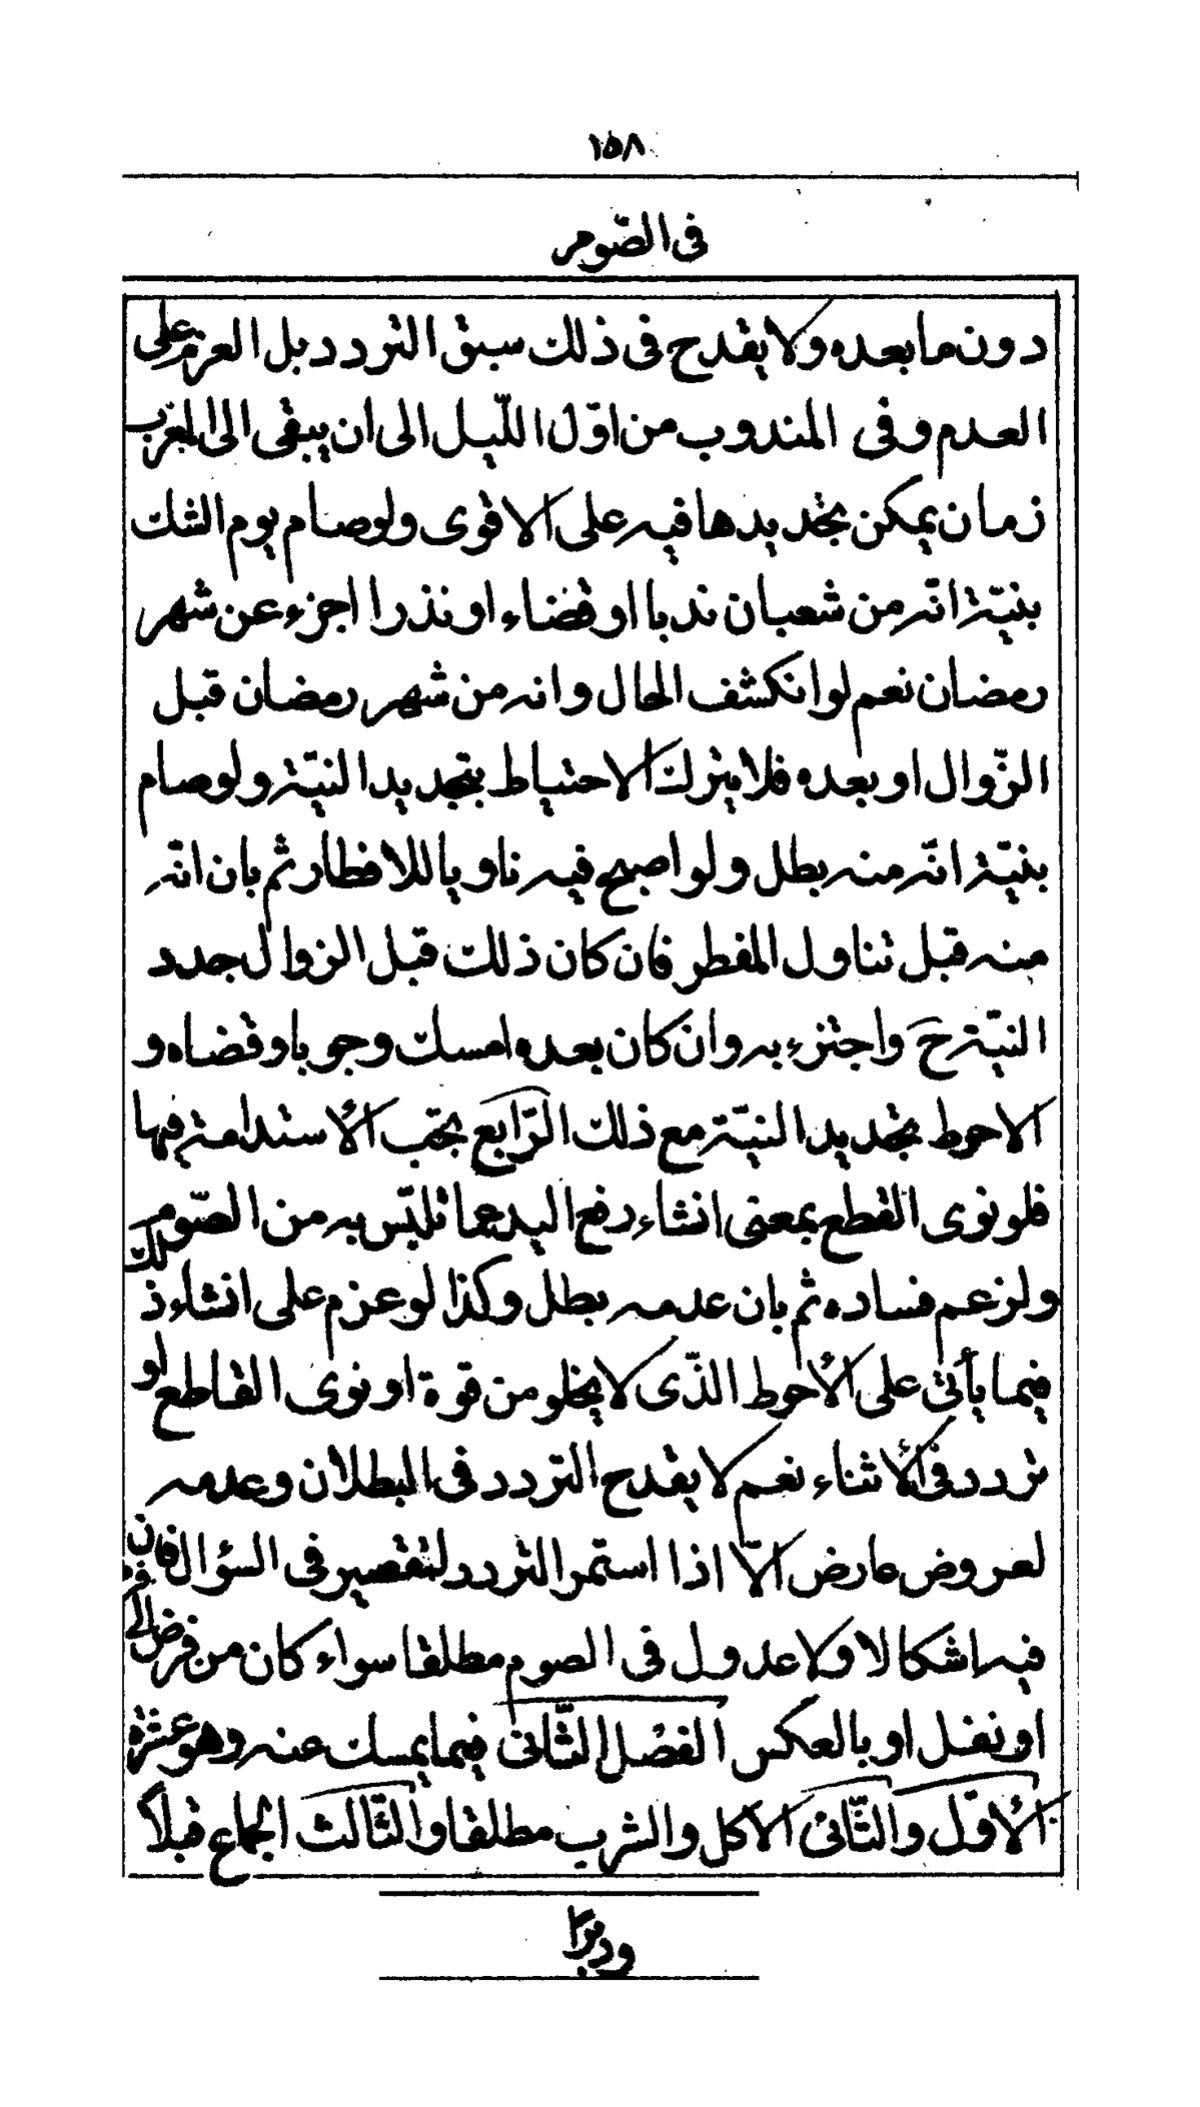 ١٥٨
فى الصّوم
دون ما بعده ولا يقدح فى ذلك سبق التردد بل العزم على
العدم وفى المندوب من اوّل اللّيل الى ان يبقى الى المغرب
زمان يمكن تجديدها فيه على الاقوى ولو صام يوم الشك
بنيّة انّه من شعبان ندبا او قضاء او نذرا اجزء عن شهر
رمضان نعم لو انكشف الحال وانه من شهر رمضان قبل
الزّوال او بعده فلا يترك الاحتياط بتجديد النيّة ولو صام
بنيّة انّه منه بطل ولو اصبح فيه ناويا للافطار ثم بان انّه
منه قبل تناول المفطر فان كان ذلك قبل الزوال جدد
النيّة ح واجتزء به وان كان بعده امسك وجوبا وقضاه و
الاحوط تجديد النيّة مع ذلك الرّابع يجب الأستدامة فيها
فلو نوى القطع بمعنى انشاء رفع اليد عما تلبّس به من الصّوم
ولزعم فساده ثم بان عدمه بطل وكذا لو عزم على انشاء ذلك
فيما يأتى على الأحوط الذّى لا يخلو من قوة او نوى القاطع او
تردد فى الأثناء نعم لا يقدح التردد فى البطلان وعدمه
لعروض عارض الّا اذا استمر التردد لتقصير فى السؤال فان
فيه اشكالا ولا عدول فى الصوم مطلقا سواء كان من فرض الى فرض
او نفل او بالعكس الفصل الثّانى فيما يمسك عنه وهو عشرة
الأوّل والثّانى الأكل والشرب مطلقا والثّالث الجماع قبلاً
ودبرًا